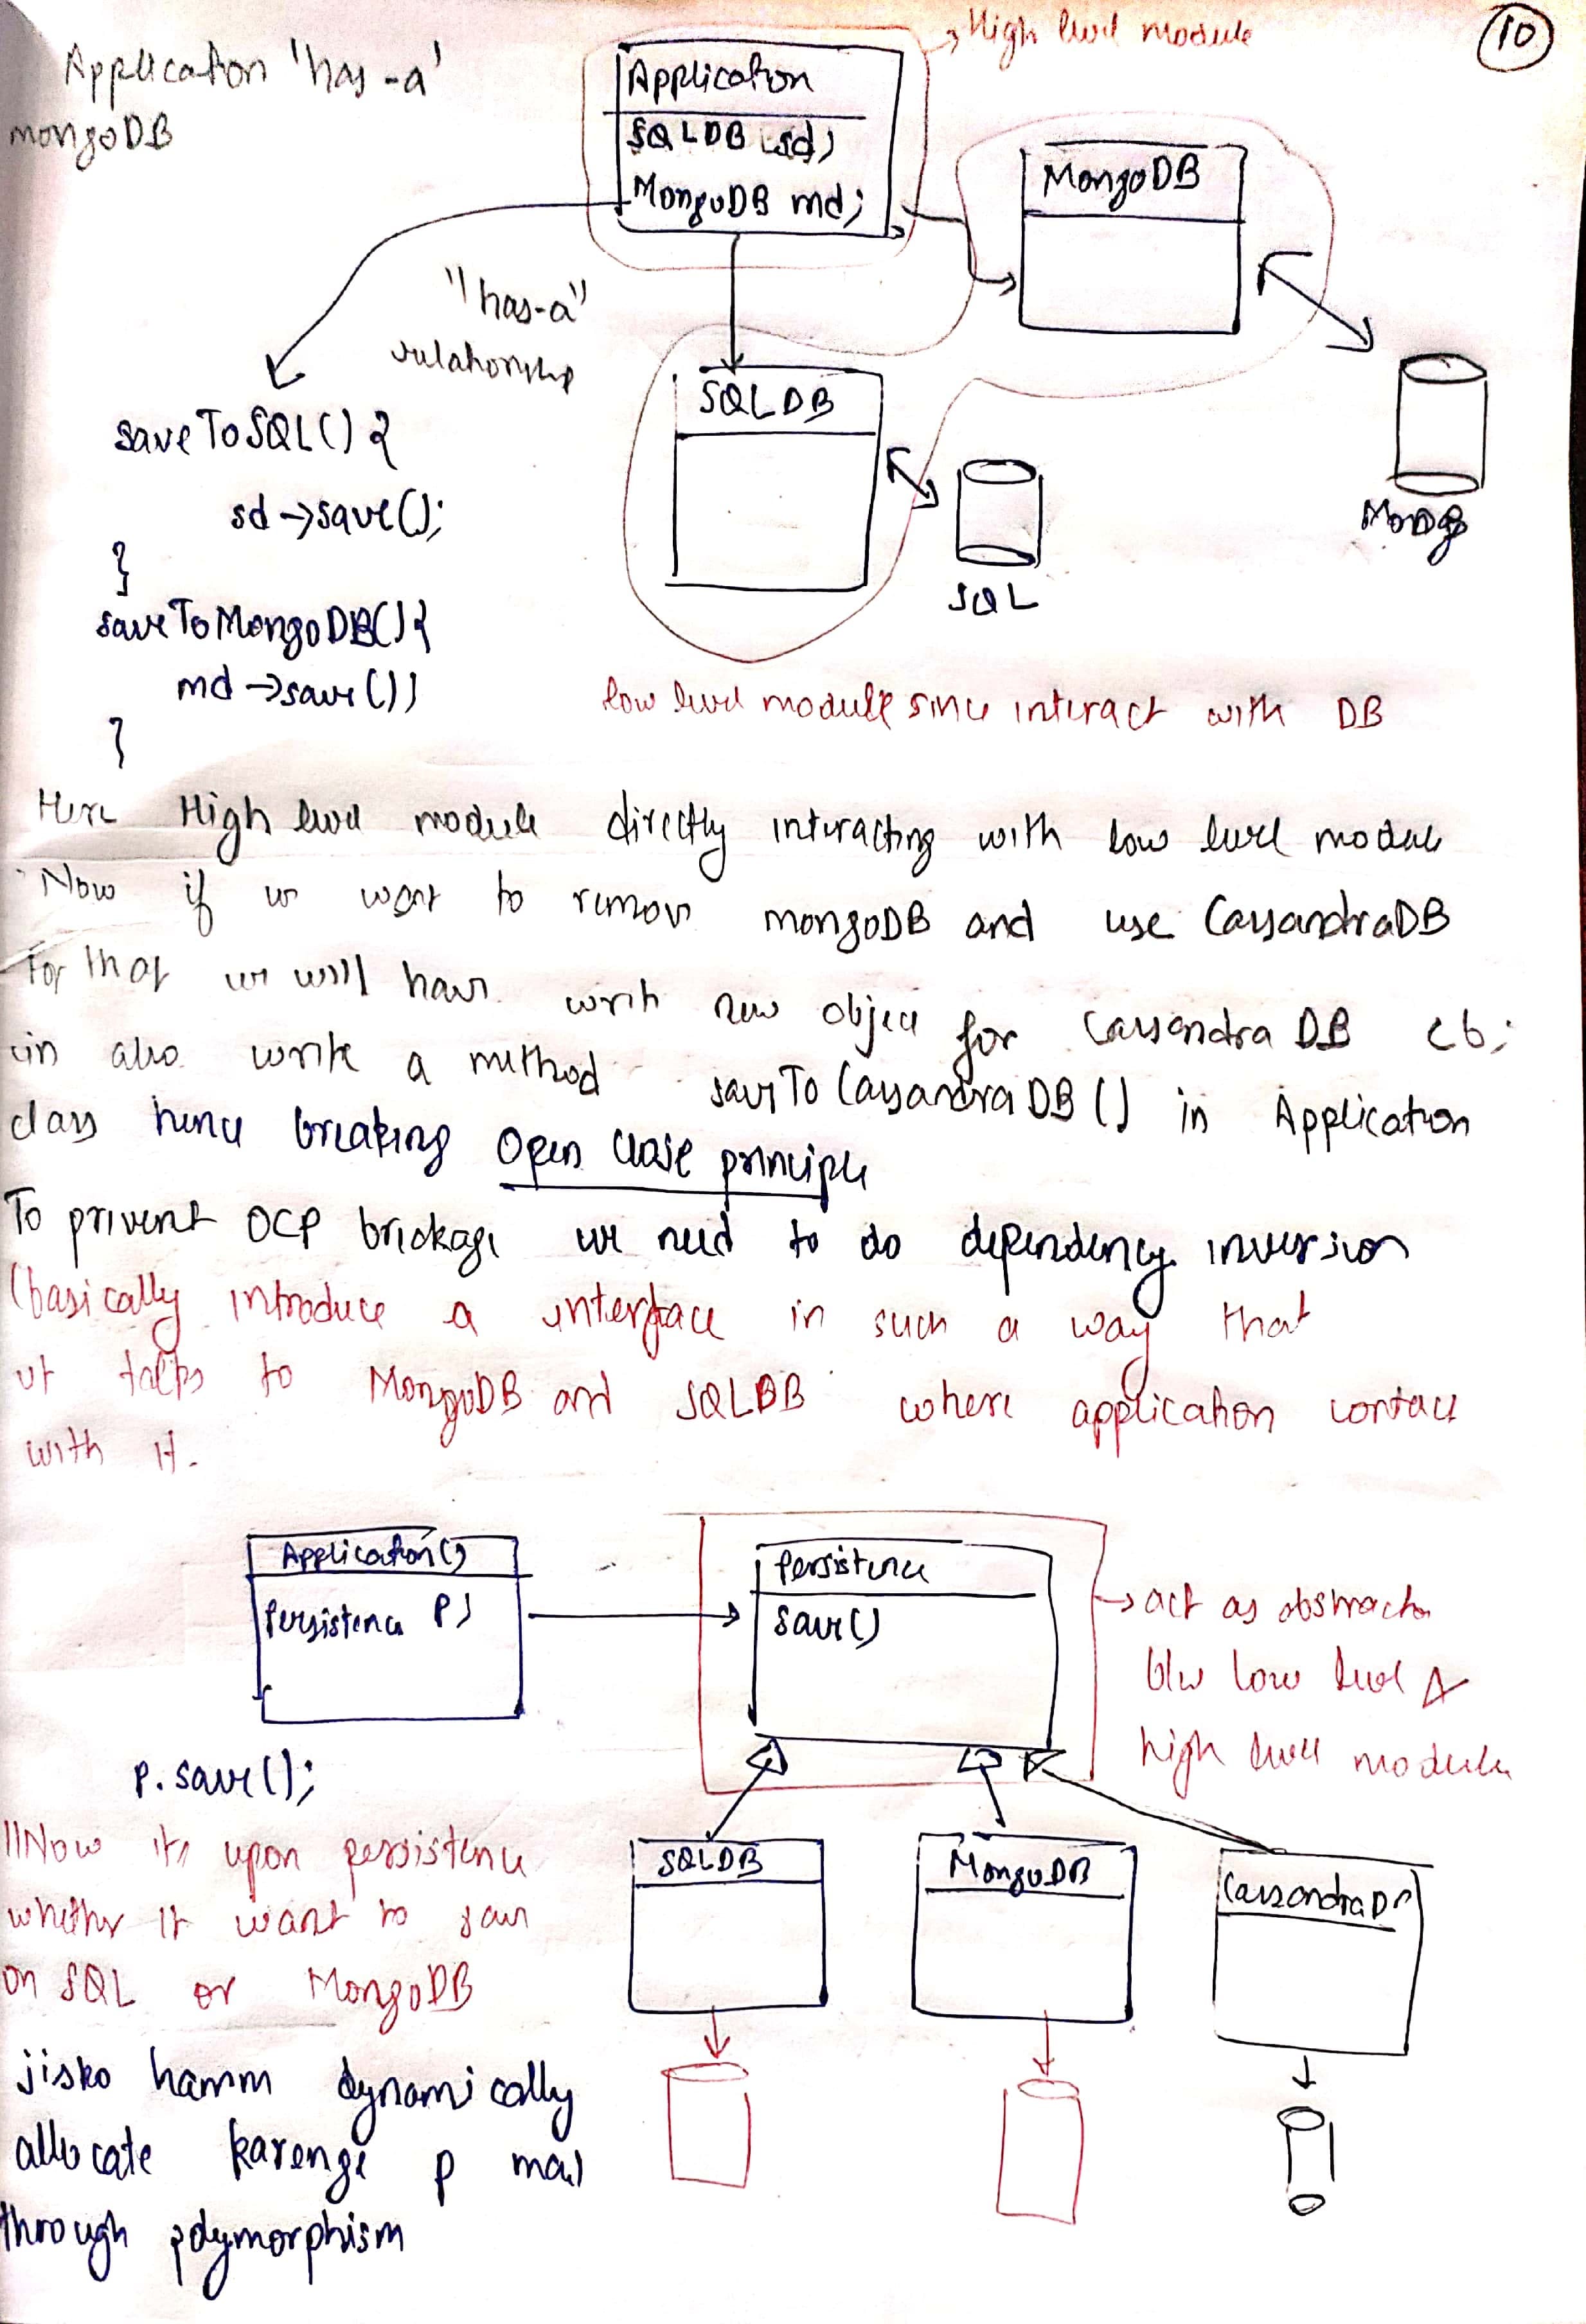 10
High level module
Application 'has-a'
mongoDB
Application
SQLDB sd;
MongoDB md;
MongoDB
"has-a"
relationship
SQLDB
saveToSQL() {
sd->save();
}
SQL
saveToMongoDB() {
md->save();
}
low level module since interact with DB
Here High level module directly interacting with low level module
Now if we want to remove mongoDB and use CassandraDB
For that we will have write new object for Cassandra DB cb;
in also write a method saveTo CassandraDB() in Application
class hence breaking Open close principle
To prevent OCP breakage we need to do dependency inversion
(basically introduce a interface in such a way that
it talks to MongoDB and SQLDB where application contact
with it.
Application()
Persistence p;
Persistence
save()
act as abstraction
b/w low level &
high level module
p.save();
//Now its upon persistence
whether it want to save
on SQL or MongoDB
SQLDB
MongoDB
CassandraDB
jisko hamm dynamically
allocate karenge p mai
through polymorphism